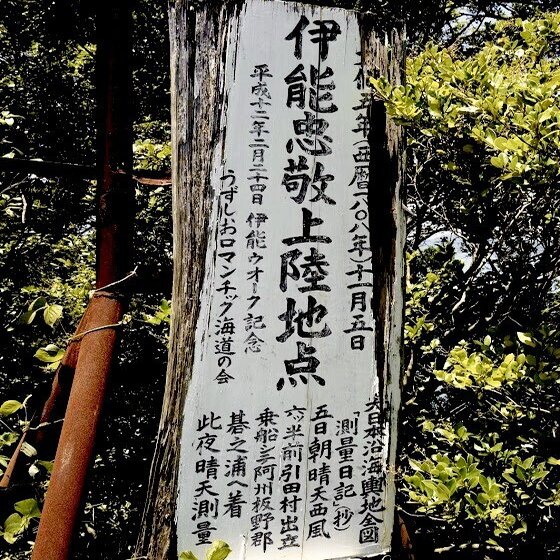 文化五年(西暦一八〇八年)十一月五日
伊能忠敬上陸地点
平成十二年二月二十四日 伊能ウオーク記念
うずしおロマンチック海道の会
大日本沿海輿地全図
「測量日記」(抄)
五日朝晴天西風
六ツ半前引田村出立
乗船ニ阿州板野郡
碁之浦へ着
此夜晴天測量